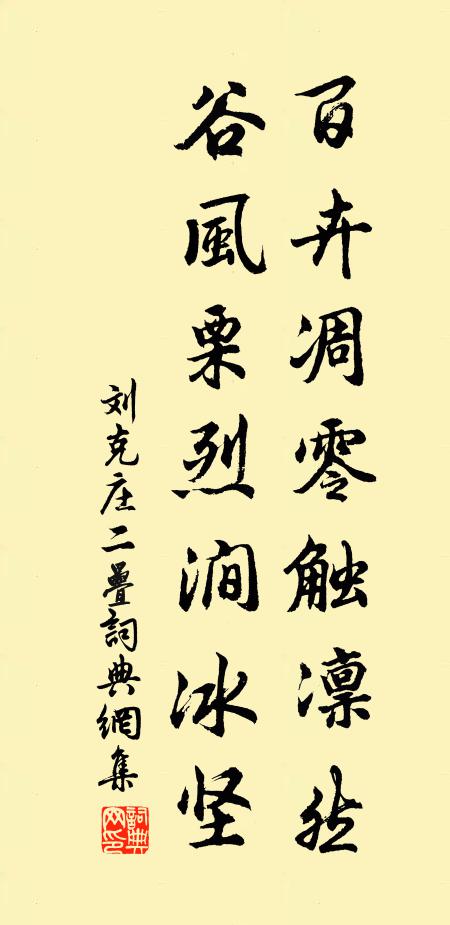 百卉凋零触凛然
谷風栗烈涧冰坚
刘克庄二疊詞典網集
詞典网印